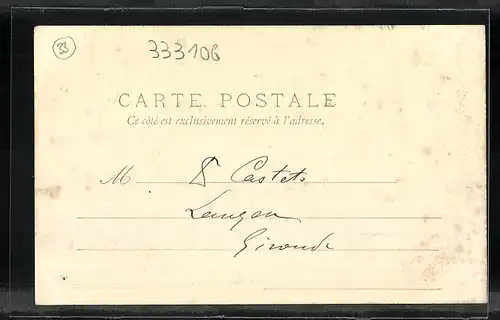 33
333106
CARTE POSTALE
Ce côté est exclusivement réservé à l'adresse.
M Castets
Langon
Gironde